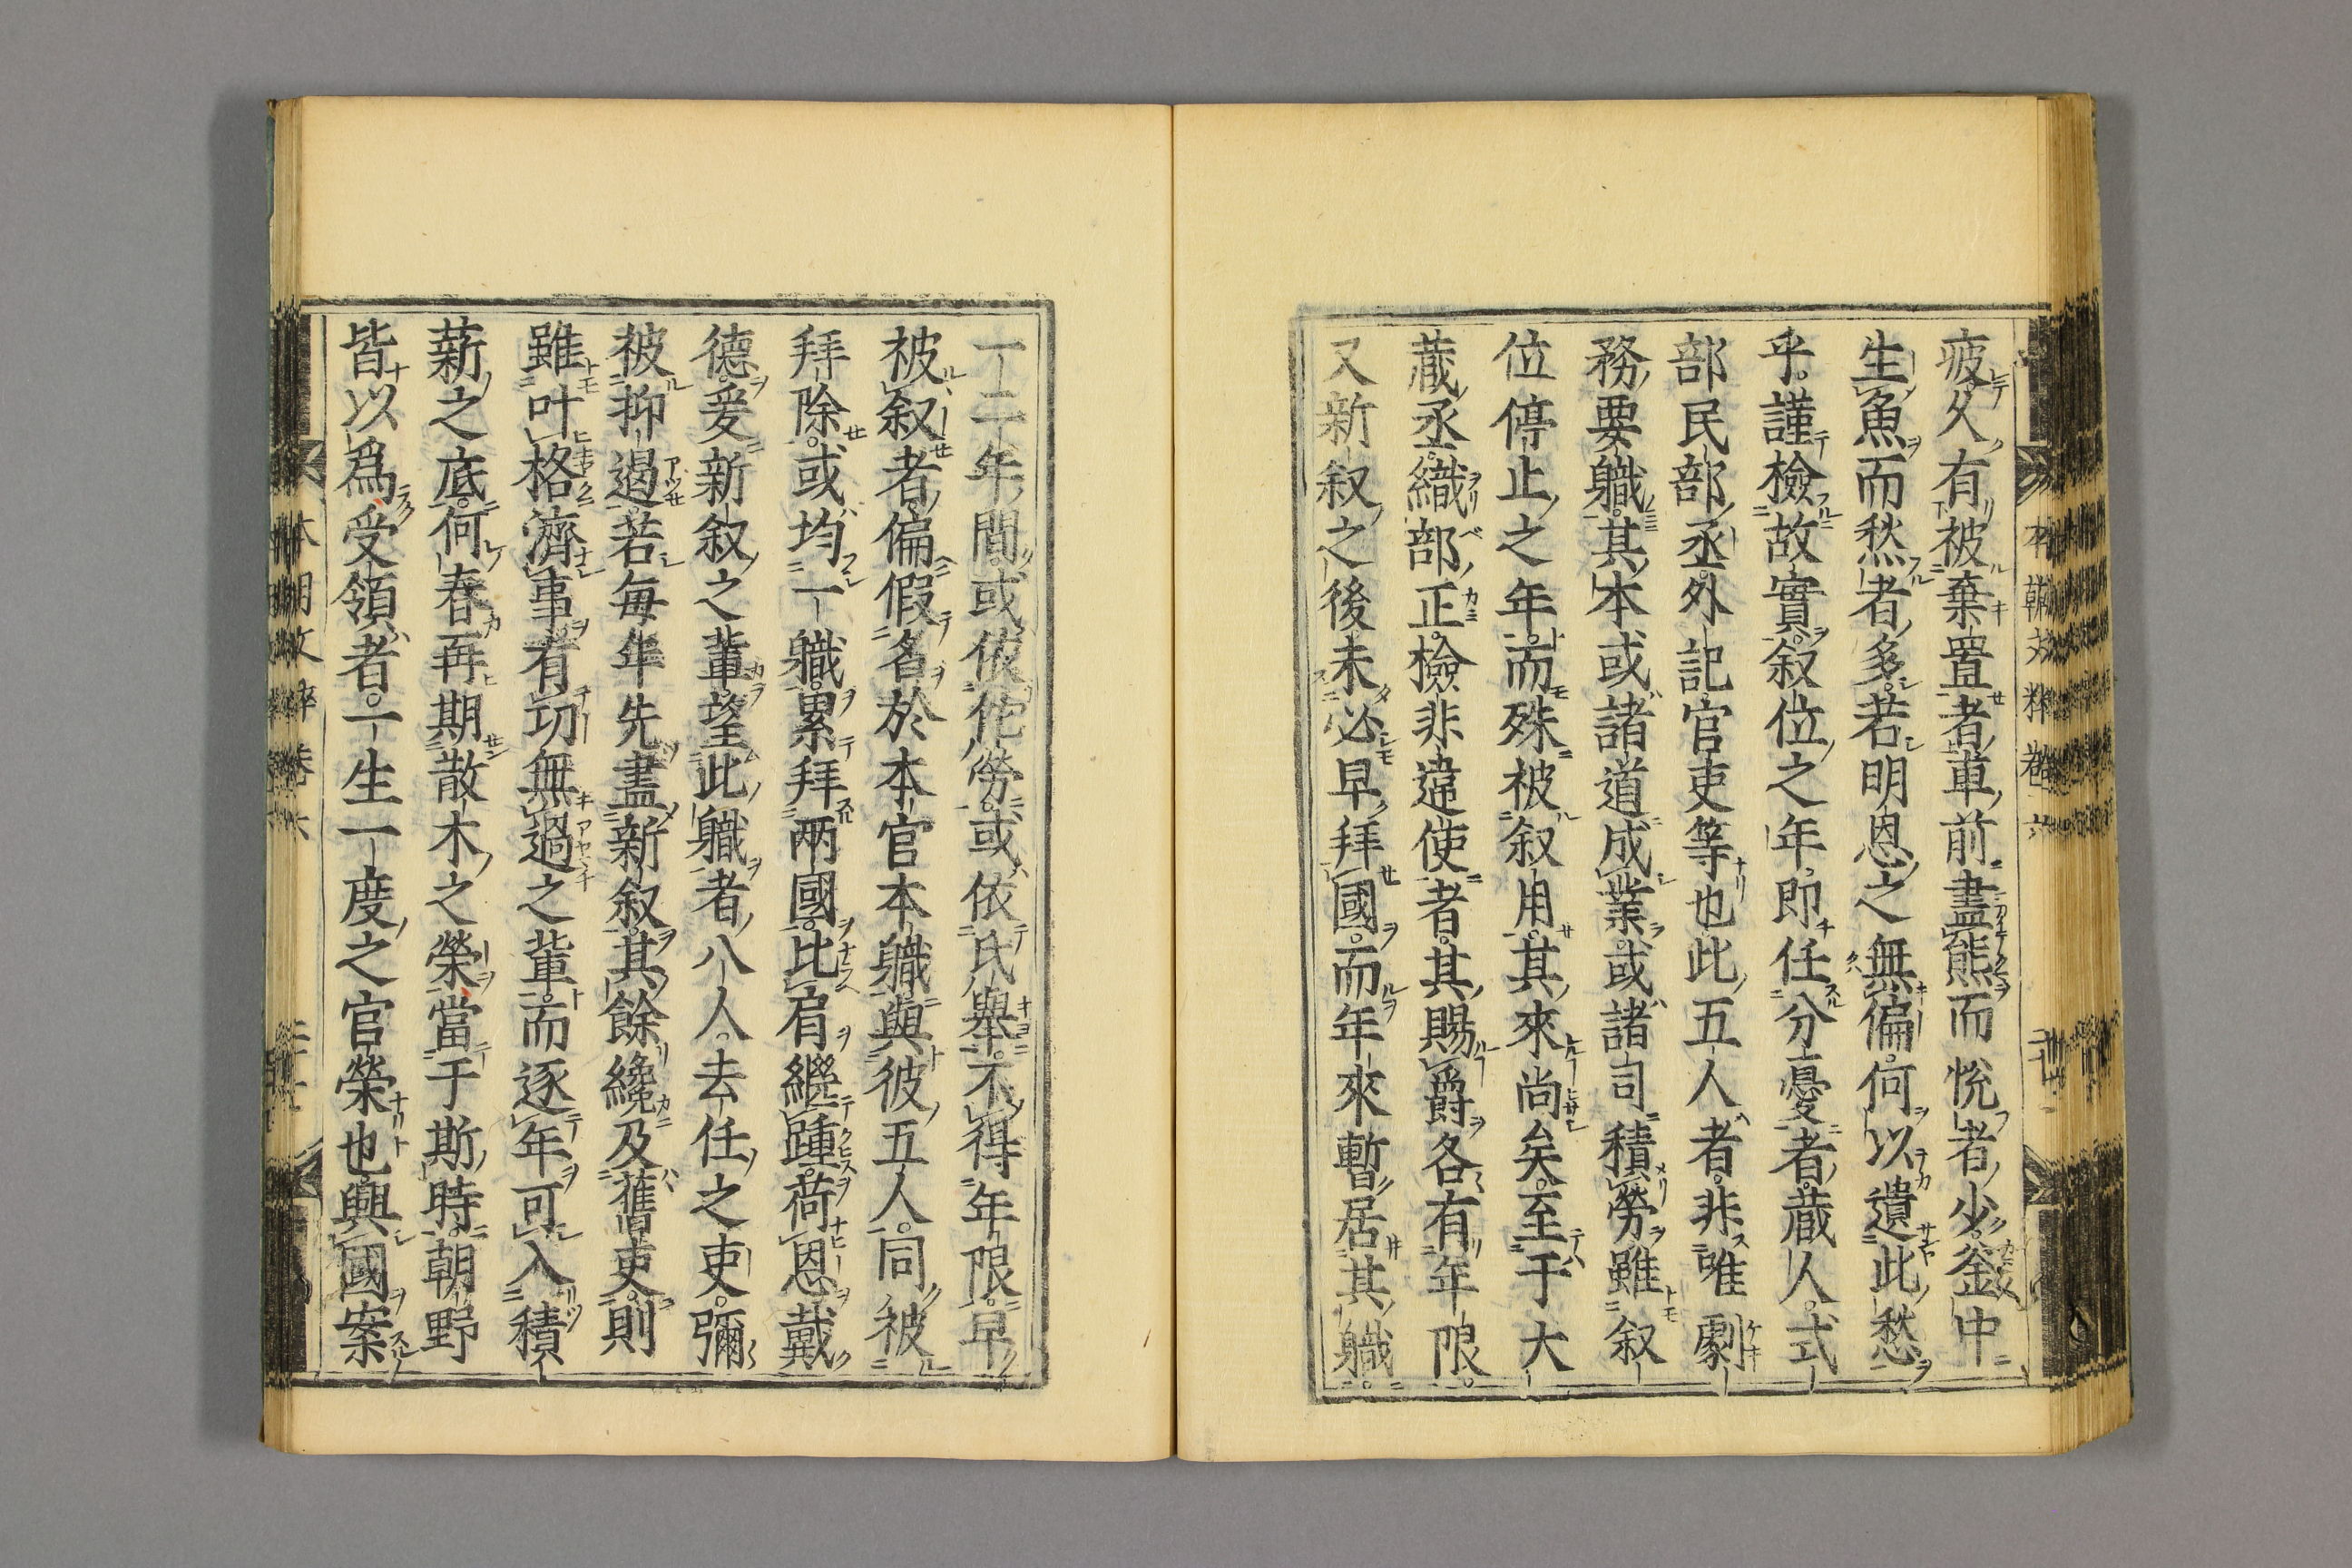 疲久有被棄置者車前畫熊而悦者少釜中
生魚而愁者多若明恩之無偏何以遺此愁
乎謹檢故實叙位之年即任分憂者蔵人式
部民部丞外記官吏等也此五人者非唯劇
務要職其本或諸道成業或諸司積勞雖叙
位停止之年而殊被叙用其來尚矣至于大
蔵丞織部正檢非違使者其賜爵各有年限
又新叙之後未必早拜國而年來暫居其職
一二年間或依佗勞或依氏舉不得年限早
被叙者偏假名於本官本職與彼五人同被
拜除或均一職累拜兩國比肩繼踵荷恩戴
德爰新叙之輩望此職者八人去任之吏彌
被抑遏若毎年先盡新叙其餘纔及舊吏則
雖叶格濟事有功無過之輩而逐年可入積
薪之底何春再期散木之榮當于斯時朝野
皆以爲受領者一生一度之官榮也興國案
本朝文粹卷六